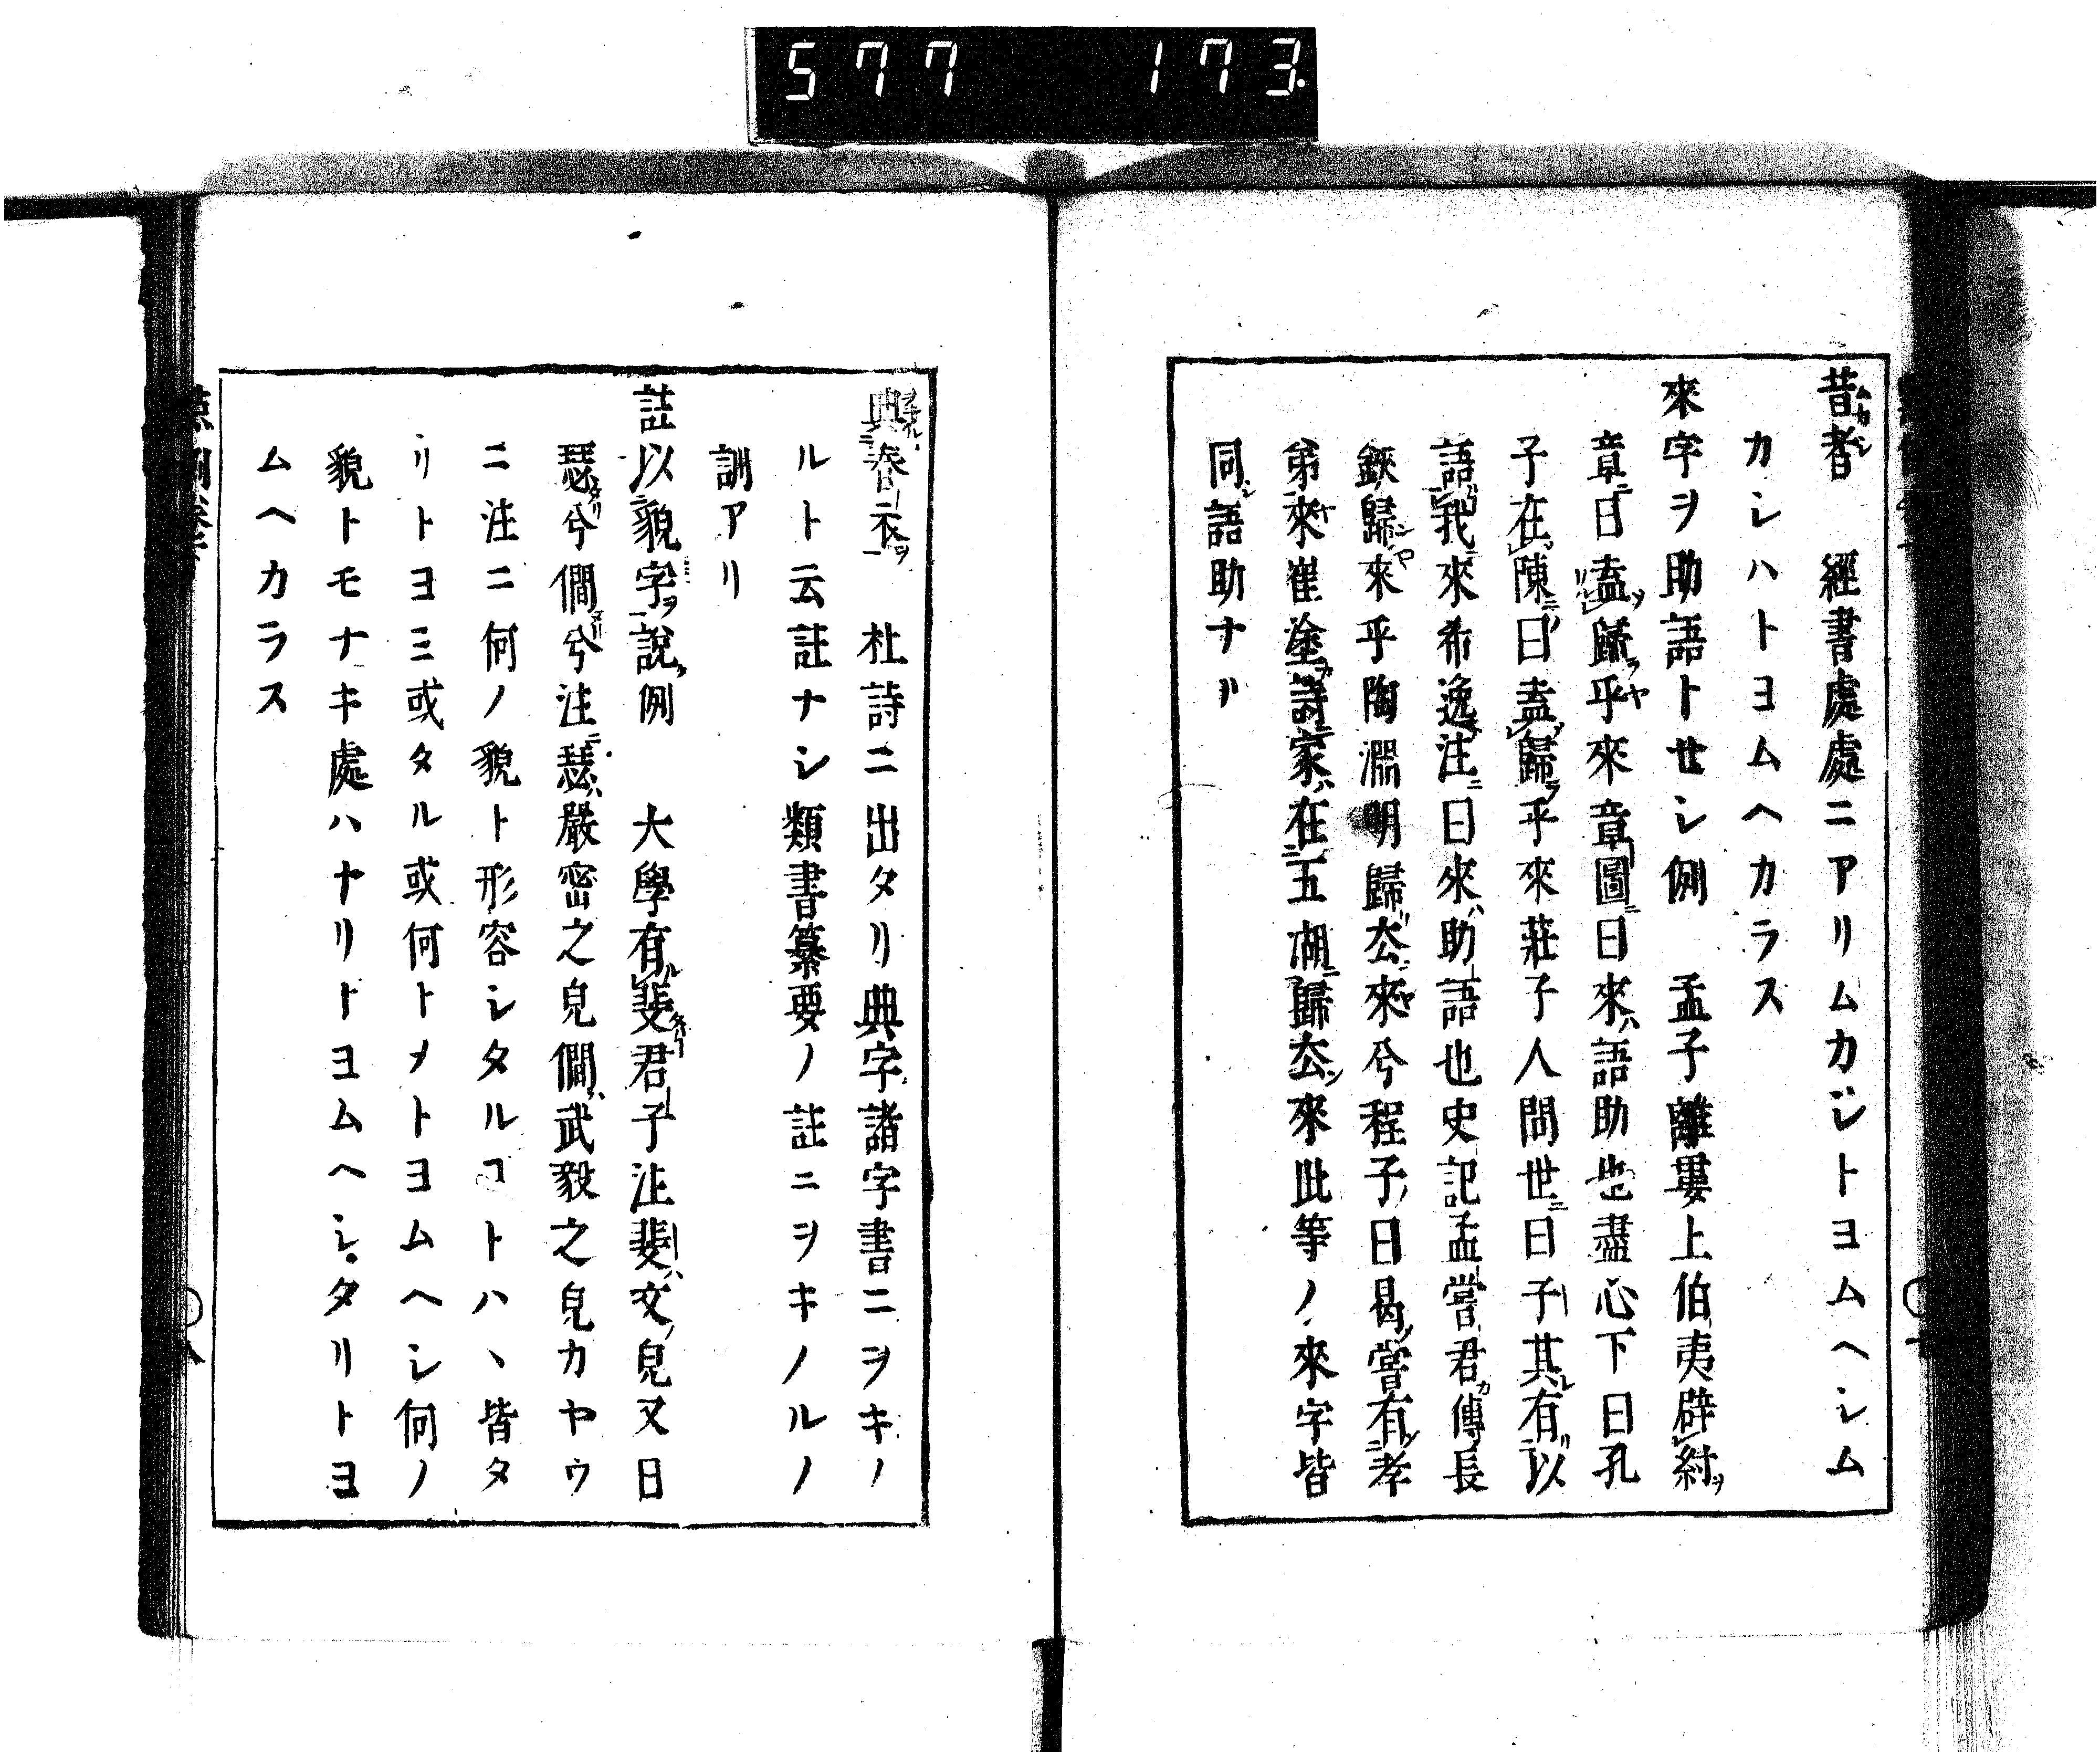 577 173
昔者 經書處處ニアリムカシトヨムヘシム
カシハトヨムヘカラス
來字ヲ助語トせシ例 孟子離婁上伯夷辟紂
章曰盍歸乎來章圖曰來語助也盡心下曰孔
子在陳曰盍歸乎來莊子人間世曰子其有以
語我來希逸注曰來助語也史記孟嘗君傳長
鋏歸來乎陶淵明歸去來兮程子曰曷嘗有孝
弟來崔塗詩家在五湖歸去來此等ノ來字皆
同語助ナリ
典春衣 杜詩ニ出タリ典字諸字書ニヲキノ
ルト云註ナシ類書纂要ノ註ニヲキノルノ
訓アリ
註以貌字說例 大學有斐君子注斐文皃又曰
瑟兮僩兮注瑟嚴密之皃僩武毅之皃カヤウ
ニ注ニ何ノ貌ト形容シタルヿトハヽ皆タ
リトヨミ或タル或何トメトヨムヘシ何ノ
貌トモナキ處ハナリトヨムヘシタリトヨ
ムヘカラス